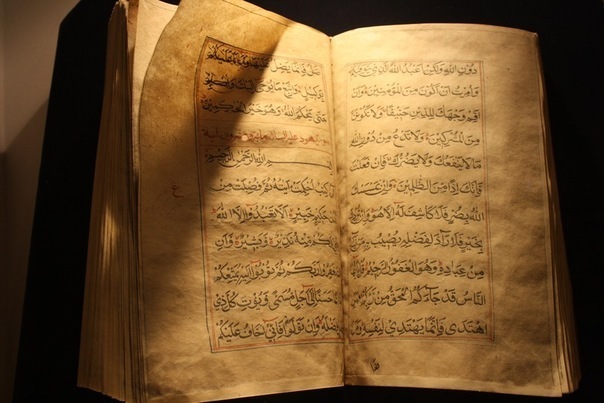 دُونِ اللّٰهِ وَلٰكِنْ اَعْبُدُ اللّٰهَ الَّذِي يَتَوَفّٰيكُمْ
وَاُمِرْتُ اَنْ اَكُونَ مِنَ الْمُؤْمِنِينَ وَاَنْ
اَقِمْ وَجْهَكَ لِلدِّينِ حَنِيفًا وَلَا تَكُونَنَّ
مِنَ الْمُشْرِكِينَ وَلَا تَدْعُ مِنْ دُونِ اللّٰهِ
مَا لَا يَنْفَعُكَ وَلَا يَضُرُّكَ فَاِنْ فَعَلْتَ
فَاِنَّكَ اِذًا مِنَ الظَّالِمِينَ وَاِنْ يَمْسَسْكَ
اللّٰهُ بِضُرٍّ فَلَا كَاشِفَ لَهُ اِلَّا هُوَ وَاِنْ يُرِدْكَ
بِخَيْرٍ فَلَا رَادَّ لِفَضْلِهِ يُصِيبُ بِهِ
مِنْ عِبَادِهِ وَهُوَ الْغَفُورُ الرَّحِيمُ قُلْ
النَّاسُ قَدْ جَاءَكُمُ الْحَقُّ مِنْ رَبِّكُمْ
اهْتَدَى فَاِنَّمَا يَهْتَدِي لِنَفْسِهِ
ضَلَّ فَاِنَّمَا يَضِلُّ عَلَيْهَا وَمَا اَنَا عَلَيْكُمْ
بِوَكِيلٍ وَاتَّبِعْ مَا يُوحٰى اِلَيْكَ وَاصْبِرْ
حَتّٰى يَحْكُمَ اللّٰهُ وَهُوَ خَيْرُ الْحَاكِمِينَ
سورة هود عليه السلام
بِسْمِ اللّٰهِ الرَّحْمٰنِ الرَّحِيمِ
كِتَابٌ اُحْكِمَتْ اٰيَاتُهُ ثُمَّ فُصِّلَتْ مِنْ
لَدُنْ حَكِيمٍ خَبِيرٍ اَلَّا تَعْبُدُوا اِلَّا اللّٰهَ
لَكُمْ مِنْهُ نَذِيرٌ وَبَشِيرٌ وَاَنِ
اسْتَغْفِرُوا رَبَّكُمْ ثُمَّ تُوبُوا اِلَيْهِ يُمَتِّعْكُمْ
مَتَاعًا حَسَنًا اِلٰى اَجَلٍ مُسَمًّى وَيُؤْتِ كُلَّ ذِي
فَضْلَهُ وَاِنْ تَوَلَّوْا فَاِنِّي اَخَافُ عَلَيْكُمْ